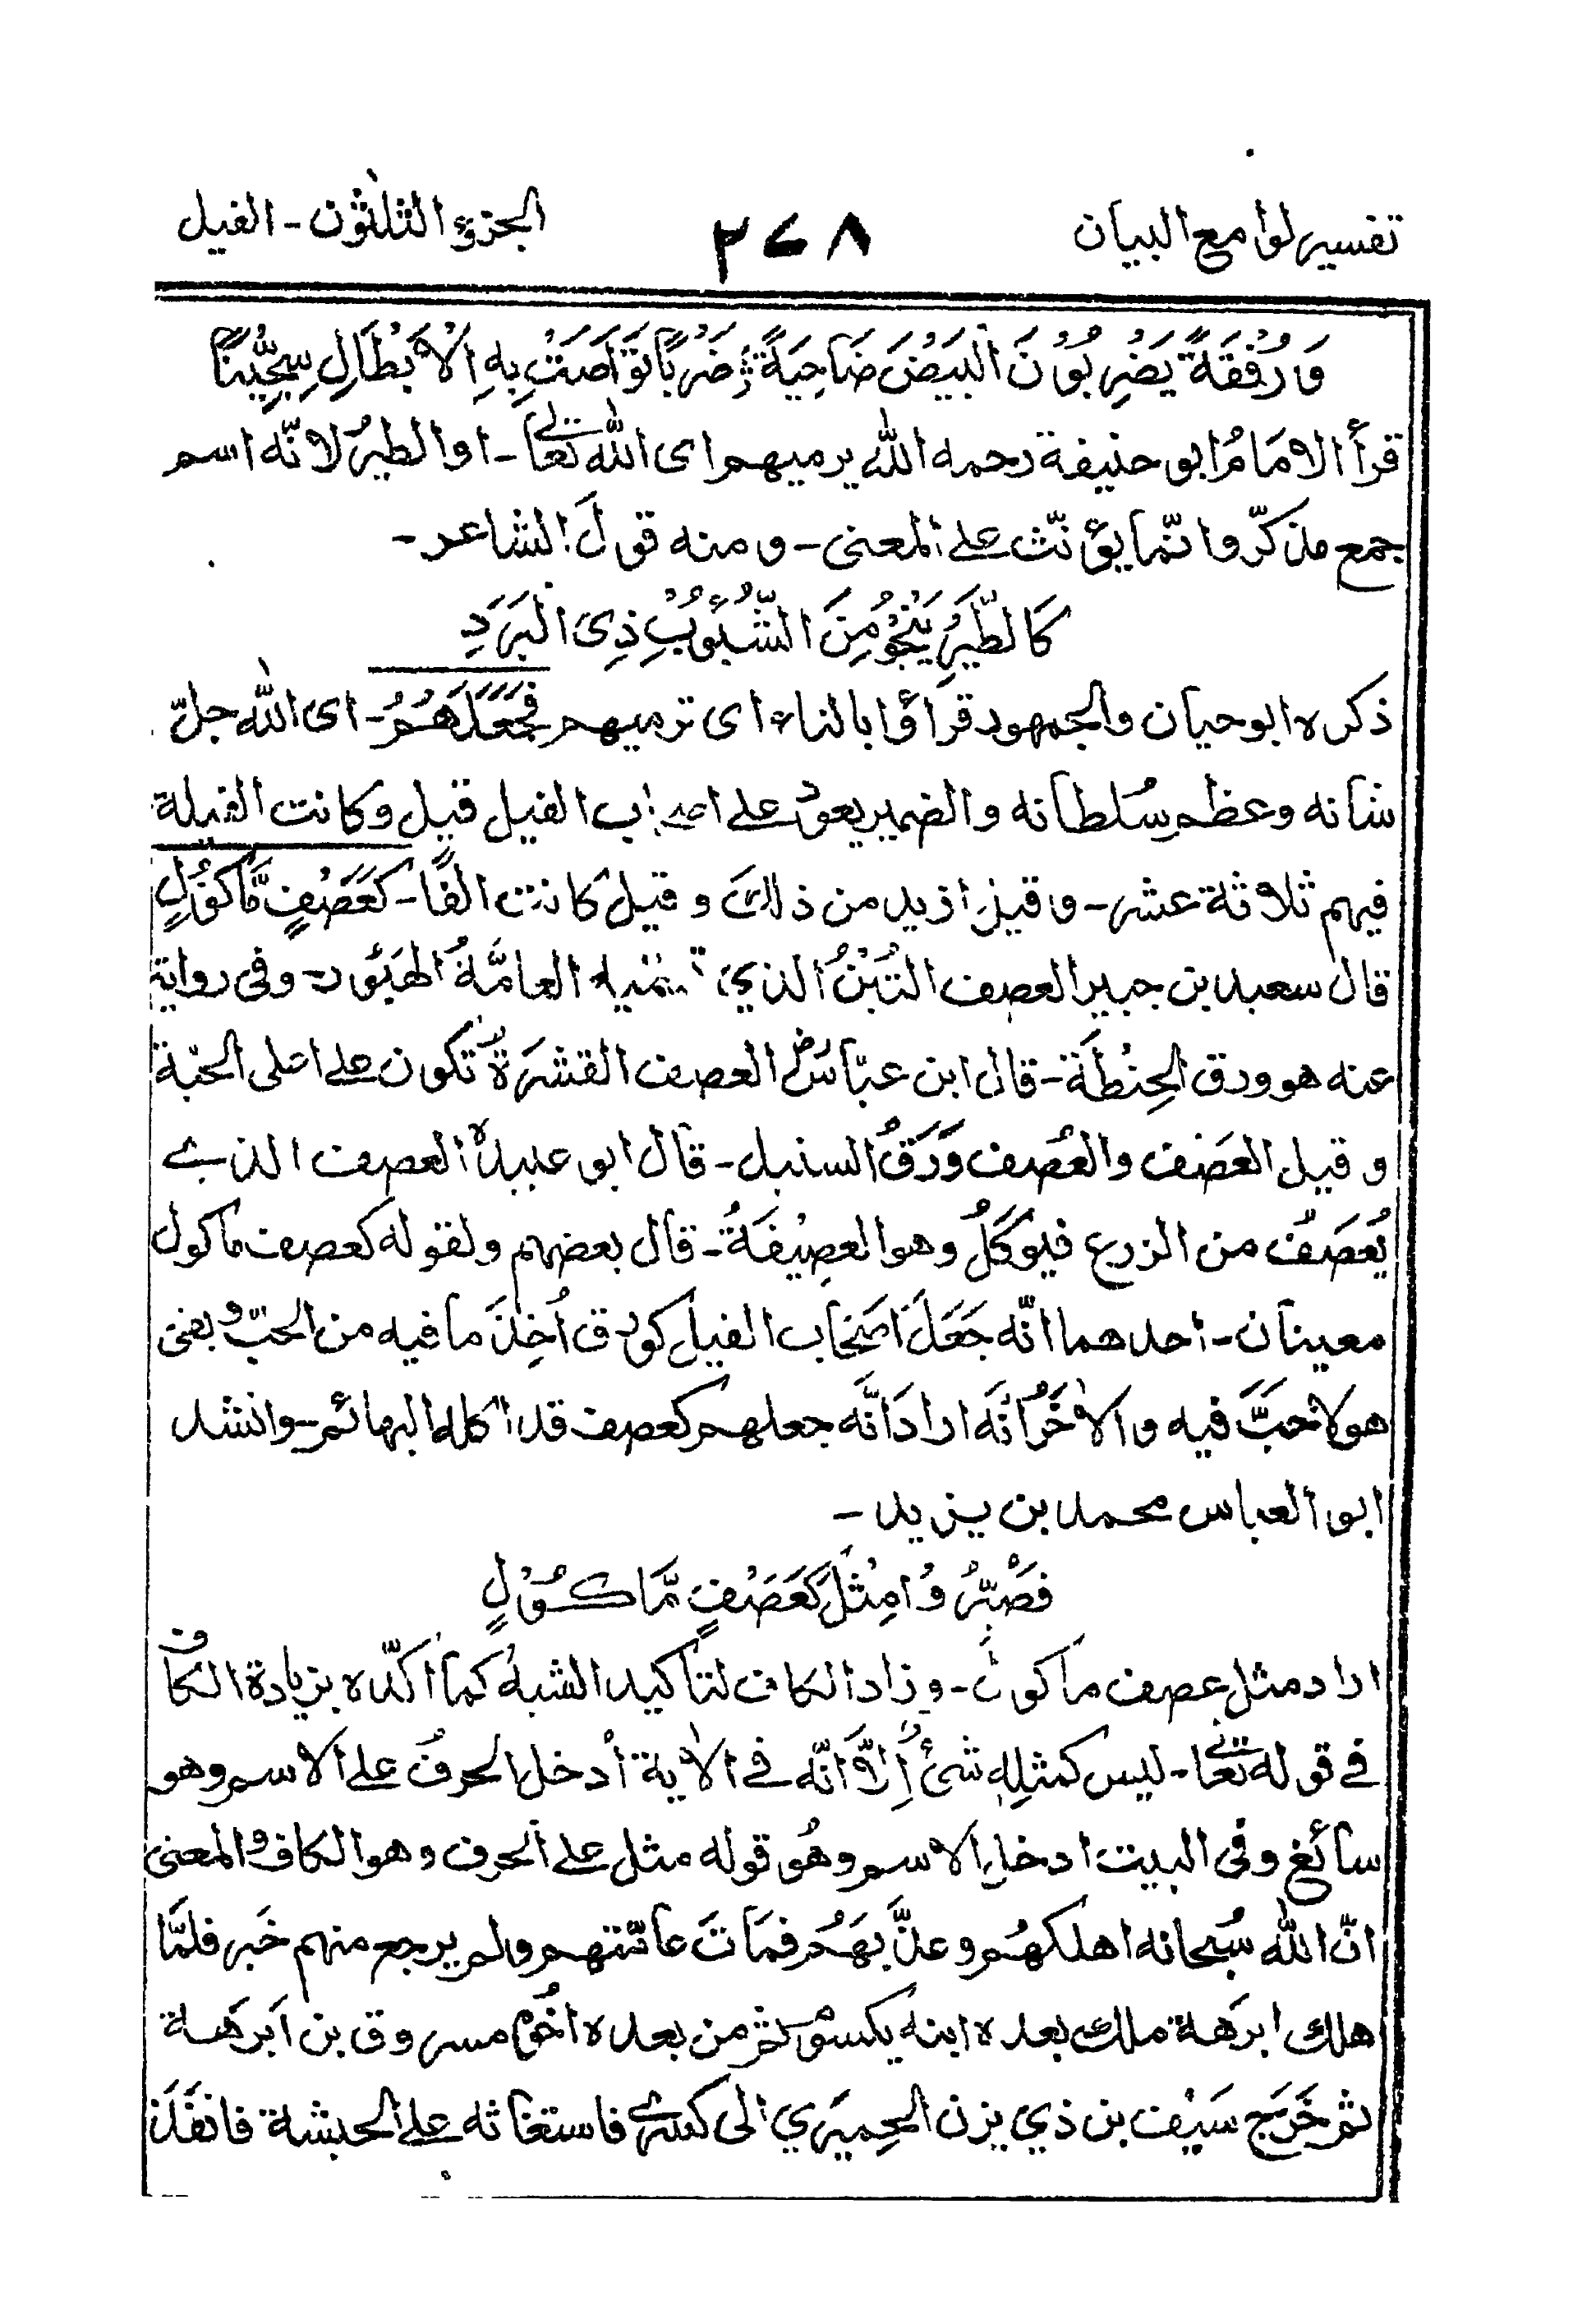 تفسير لوامع البيان ٢٧٨ الجزؤ الثلٰثون - الفيل
وَرُفْقَةً يَضْرِبُوْنَ الْبَيْضَ ضَاحِيَةً ؞ ضَرْبًا تَوَاصَتْ بِهِ الْاَبْطَالِ سِجِّيْنًا
قرأ الامَامُ ابو حنيفة رحمه الله يرميهم اى الله تعالٰى - او الطيرُ لانّه اسم
جمع مذكّر وانّما يؤنّث على المعنى - ومنه قولَ الشاعر -
كَالطَّيْرِ يَنْجُوْ مِنَ الشُّؤْبُوْبِ ذِى الْبَرَدِ
ذكره ابو حيان والجمهور قرأوا بالتاء اى ترميهم فَجَعَلَهُمْ - اى الله جلّ
شانه وعظم سُلطانه والضمير يعودُ على اصحاب الفيل قيل وكانت الفيلة
فيهم ثلاثة عشر - وقيل ازيد من ذالك وقيل كانت الفًا - كَعَصْفٍ مَّاكُوْلٍ
قال سعيد بن جبير العصف التِبْنُ الذي تسميه العامَّةُ الهَبُّور - وفى رواية
عنه هو ورق الحِنْطَة - قال ابن عبّاسؓ العصف القشرَةُ تكون على اعلى الحبّة
وقيل العَصْف والعُصف وَرَقُ السنبل - قال ابو عبيدة العصف الذى
يُعصَفُ من الزرع فيوكَلُ وهو العصِيْفَةُ - قال بعضهم ولقوله كعصف ماكول
معينان - احدهما انّه جَعَلَ اصحاب الفيل كورق اُخِذَ ما فيه من الحبّ وبقى
هو لا حَبَّ فيه والاٰخَرُ أنّه ارادَ انَّه جعلهم كعصف قد اكله البهائم - وانشد
ابو العباس محمد بن يزيد -
فَصُيِّرُوْا مِثْلَ كَعَصْفٍ مَّاكُوْلٍ
اراد مثل عصف ماكول - وزاد الكاف لتأكيد الشبه كما اكّده بزيادة الكاف
فى قوله تعالٰى - ليس كمثلِهٖ شئُ إِلَّا انّه فى الاٰية أدخل الحرفَ على الاسم وهو
سائغ وفى البيت ادخل الاسم وهُو قوله مثل على الحرف وهو الكاف والمعنى
انّ الله سُبحانه اهلكهُم وعذَّبهُم فمَاتَ عامّتهم ولم يرجع منهم خَبر فلمَّا
هلك ابرَهة ملك بعده ابنه يكسوم ثم من بعده اخُوه مسروق بن ابرَهة
ثم خَرَج سَيْف بن ذي يزن الحِميَري الى كسرى فاستغاثه على الحبشة فانفَذَ